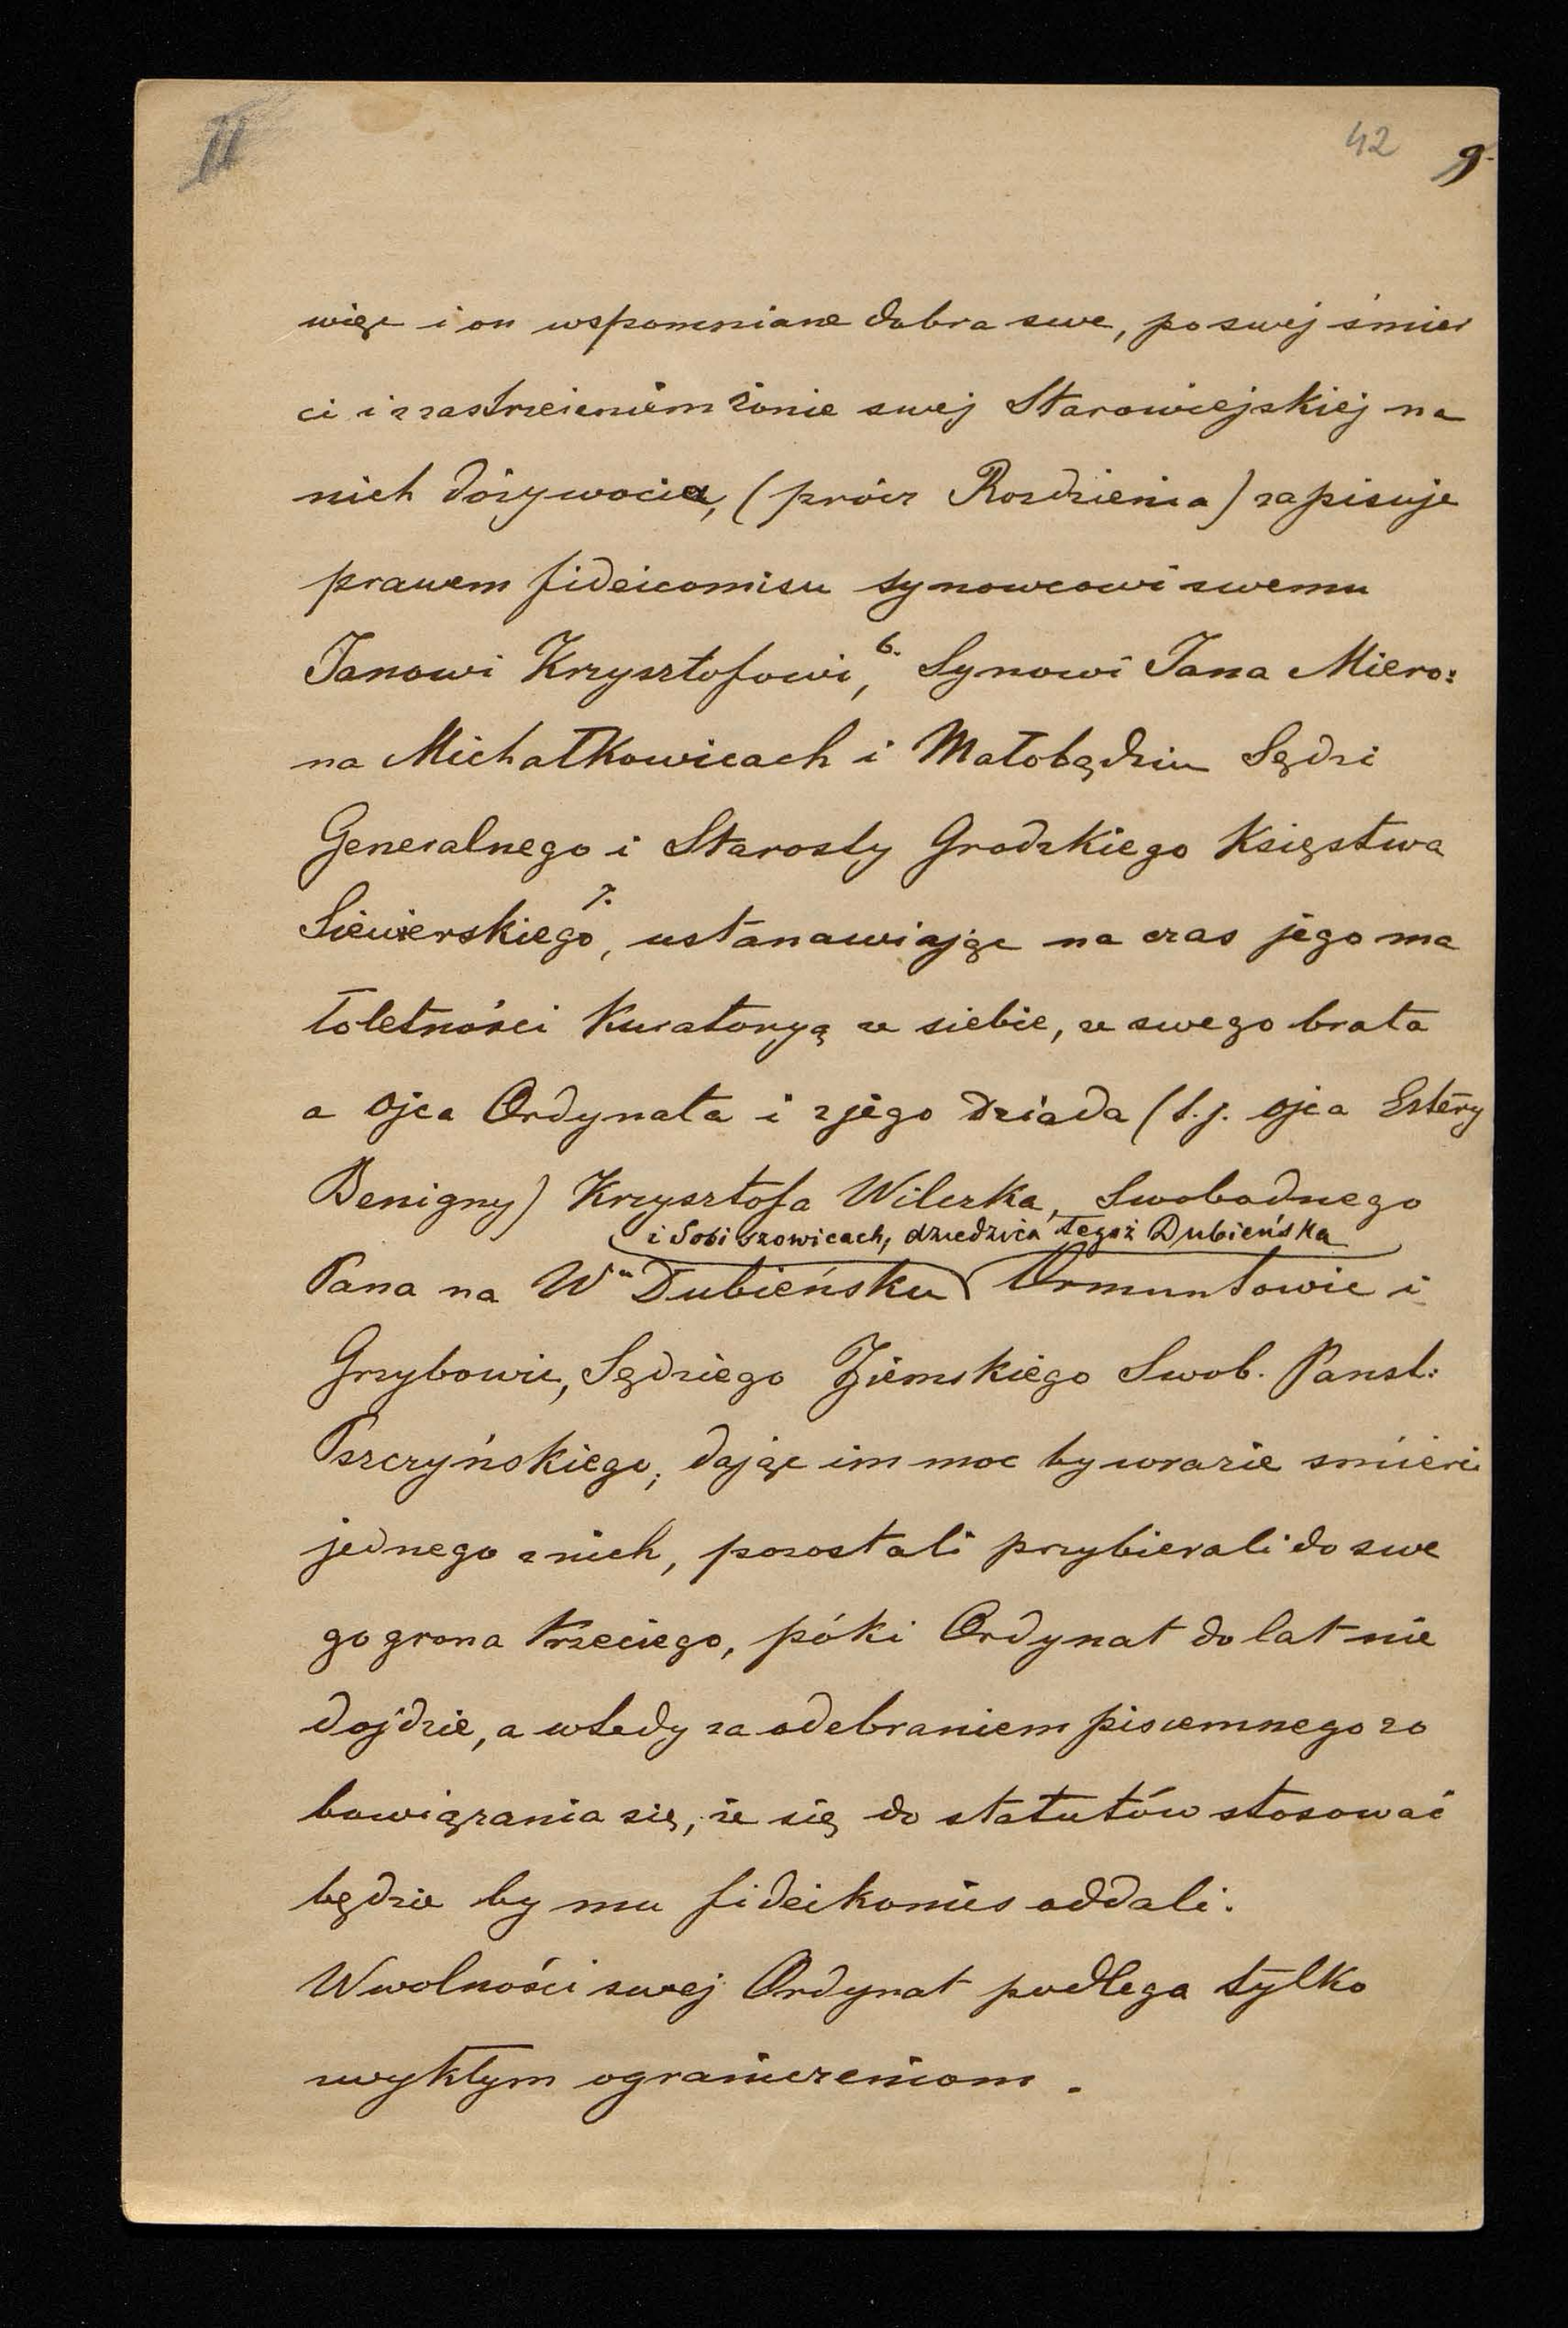 II
42 9.
więc i on wspomniane dobra swe, po swej śmier
ci i z zastrzeżeniem żonie swej Starowiejskiej na
nich dożywocia, (prócz Rozdzienia) zapisuje
prawem fideicomisu synowcowi swemu
Janowi Krzysztofowi, 6. Synowi Jana Miero:
na Michałkowicach i Małobądziu Sędzi
Generalnego i Starosty Grodzkiego Księstwa
Siewierskiego 7., ustanawiając na czas jego ma
łoletności Kuratoryą ze siebie, ze swego brata
a ojca Ordynata i z jego dziada (t.j. ojca Estery
Benigny) Krzysztofa Wilczka, Swobodnego
i Sobiszowicach, dziedzica tegoż Dubieńska
Pana na W. Dubieńsku Ormuntowie i
Grzybowie, Sędziego Ziemskiego Swob. Panst:
Pszczyńskiego, dając im moc by w razie śmierci
jednego z nich, pozostali przybierali do swe
go grona trzeciego, póki Ordynat do lat nie
dojdzie, a wtedy za odebraniem pisemnego zo
bowiązania się, że się do statutów stosować
będzie by mu fideikomis oddali.
W wolności swej Ordynat podlega tylko
zwykłym ograniczeniom.